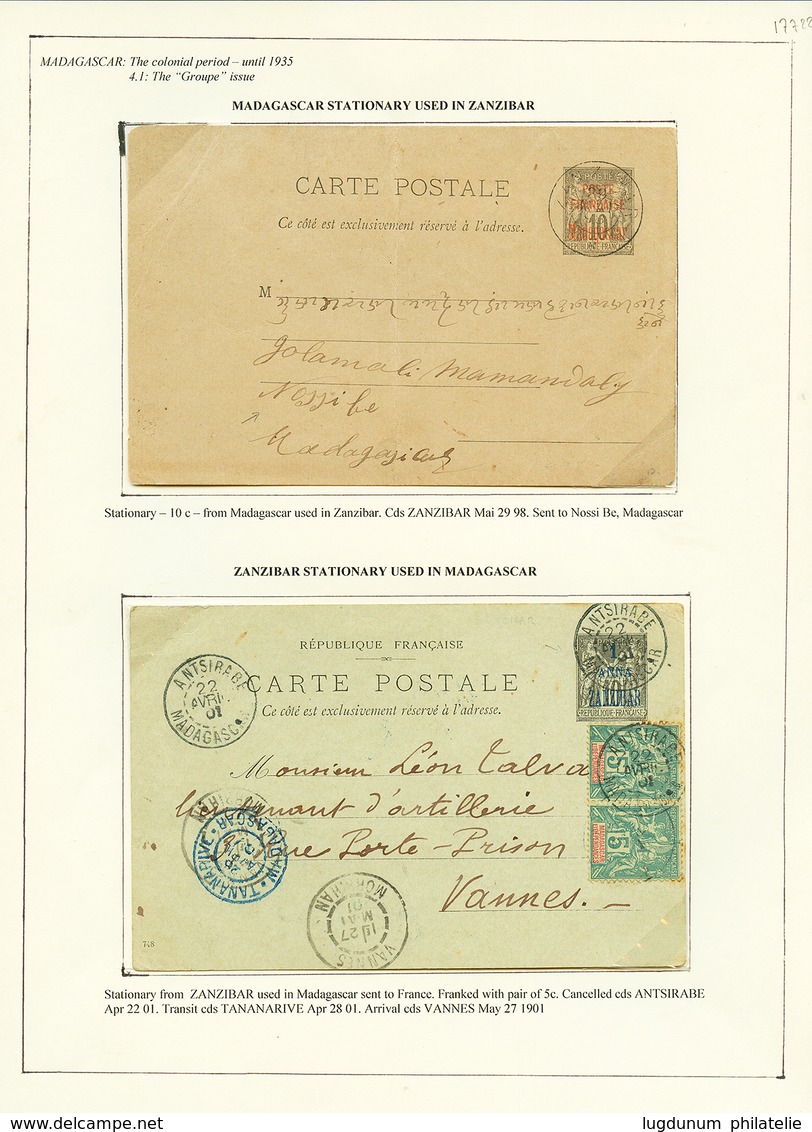 17728
MADAGASCAR: The colonial period – until 1935
4.1: The “Groupe” issue
MADAGASCAR STATIONARY USED IN ZANZIBAR
CARTE POSTALE
Ce côté est exclusivement réservé à l'adresse.
POSTE
FRANÇAISE
Madagascar
10
RÉPUBLIQUE FRANÇAISE
M
Golamali Mamandaly
Nossi be
Madagascar
Stationary – 10 c – from Madagascar used in Zanzibar. Cds ZANZIBAR Mai 29 98. Sent to Nossi Be, Madagascar
ZANZIBAR STATIONARY USED IN MADAGASCAR
RÉPUBLIQUE FRANÇAISE
CARTE POSTALE
Ce côté est exclusivement réservé à l'adresse.
ANTSIRABE
22
AVRIL
01
MADAGASCAR
ANTSIRABE
22
MADAGASCAR
1
ANNA
ZANZIBAR
RÉPUBLIQUE FRANÇAISE
ANTSIRABE
22
AVRIL
01
5
5
Monsieur Léon Calva
Lieutenant d'artillerie
rue Porte-Prison
Vannes. –
TANANARIVE
MADAGASCAR
VANNES
27
MAI
01
MORBIHAN
748
Stationary from ZANZIBAR used in Madagascar sent to France. Franked with pair of 5c. Cancelled cds ANTSIRABE
Apr 22 01. Transit cds TANANARIVE Apr 28 01. Arrival cds VANNES May 27 1901
www.delcampe.net
lugdunum philatelie